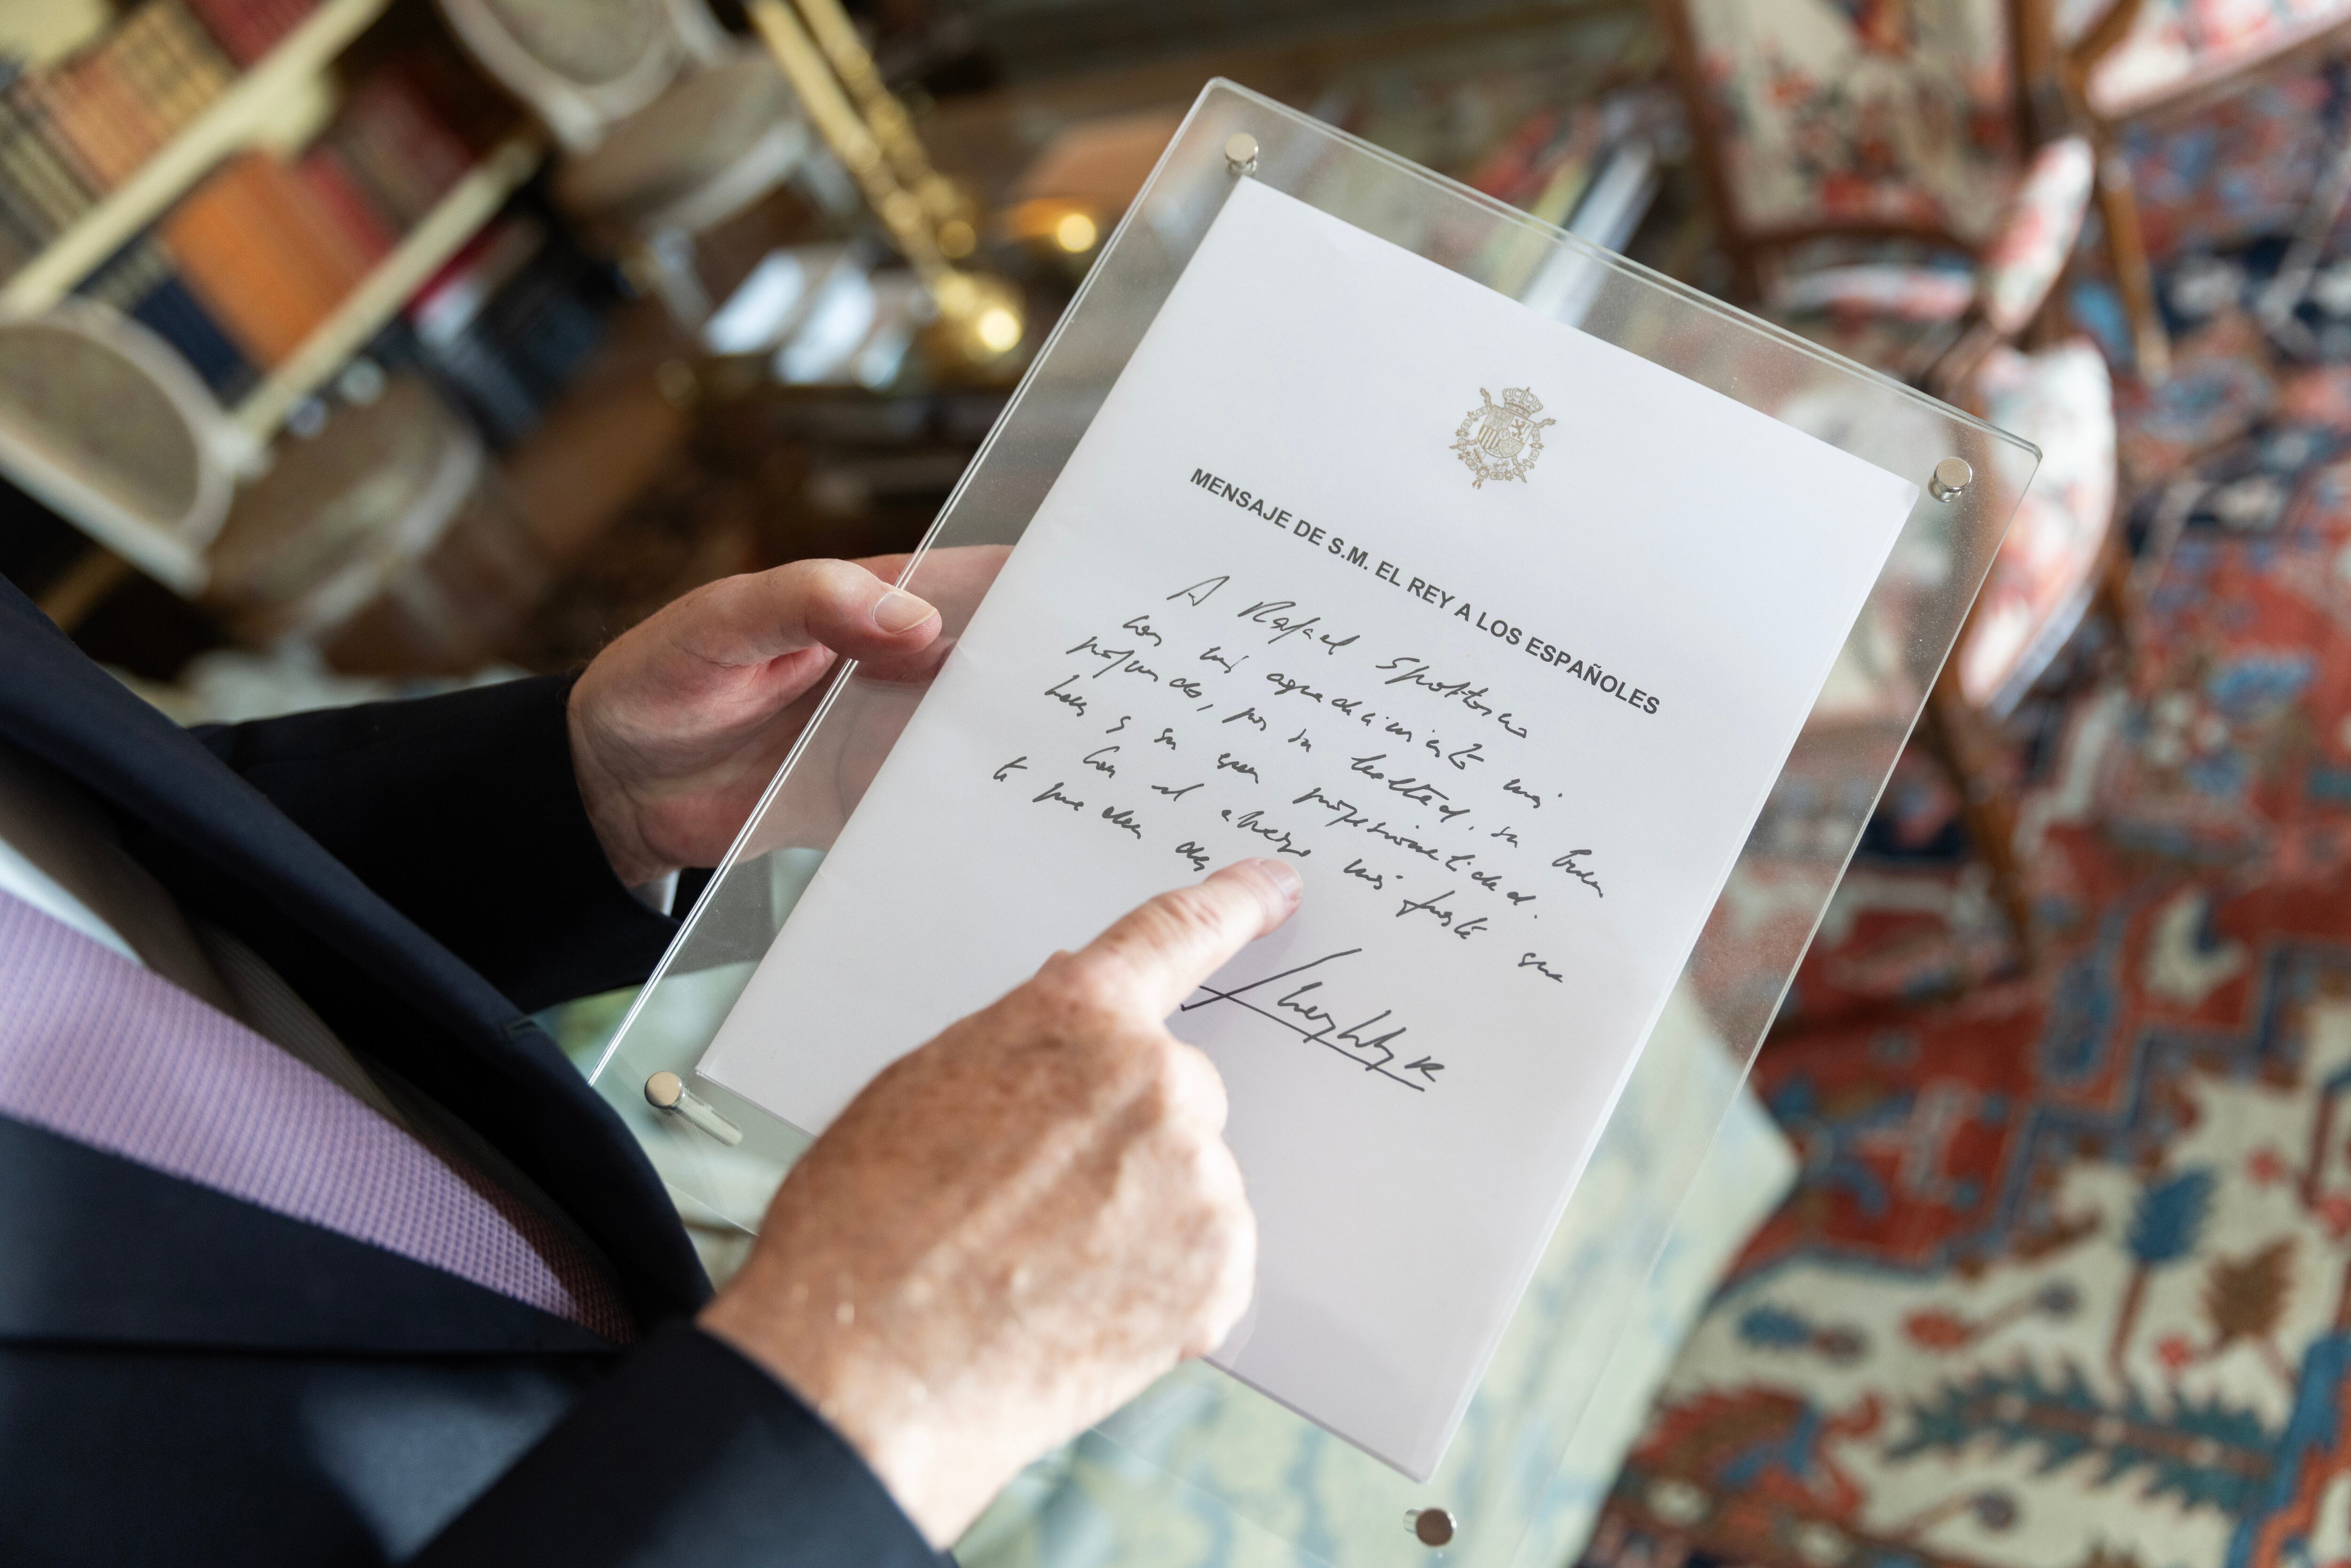 MENSAJE DE S.M. EL REY A LOS ESPAÑOLES
A Rafael Spottorno
con mi agradecimiento más
profundo, por su lealtad, su buen
hacer y su gran profesionalidad.
Con el abrazo más fuerte que
te pueda dar
Juan Carlos R